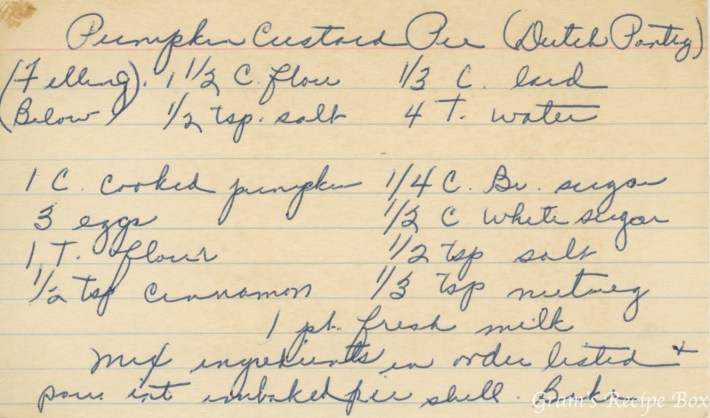 Pumpkin Custard Pie (Dutch Pantry)
(Filling). 1 1/2 C. flour 1/3 C. lard
(Below) 1/2 tsp. salt 4 T. water
1 C. cooked pumpkin 1/4 C. Br. sugar
3 eggs 1/2 C White sugar
1 T. flour 1/2 tsp salt
1/2 tsp cinnamon 1/3 tsp nutmeg
1 pt. fresh milk
Mix ingredients in order listed +
pour int unbaked pie shell. Bake
Gram's Recipe Box